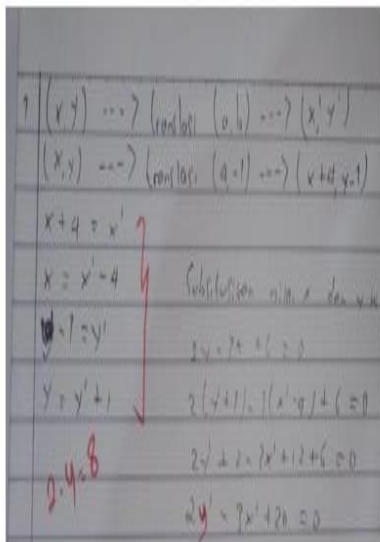 1 (x, y) ---> translasi (a, b) ---> (x', y')
(x, y) ---> translasi (4, -1) ---> (x+4, y-1)
x + 4 = x'
x = x' - 4
y - 1 = y'
y = y' + 1
2.4=8
Substitusikan nilai x dan y
2y - 3x + 6 = 0
2(y'+1) - 3(x'-4) + 6 = 0
2y' + 2 - 3x' + 12 + 6 = 0
2y' - 3x' + 20 = 0